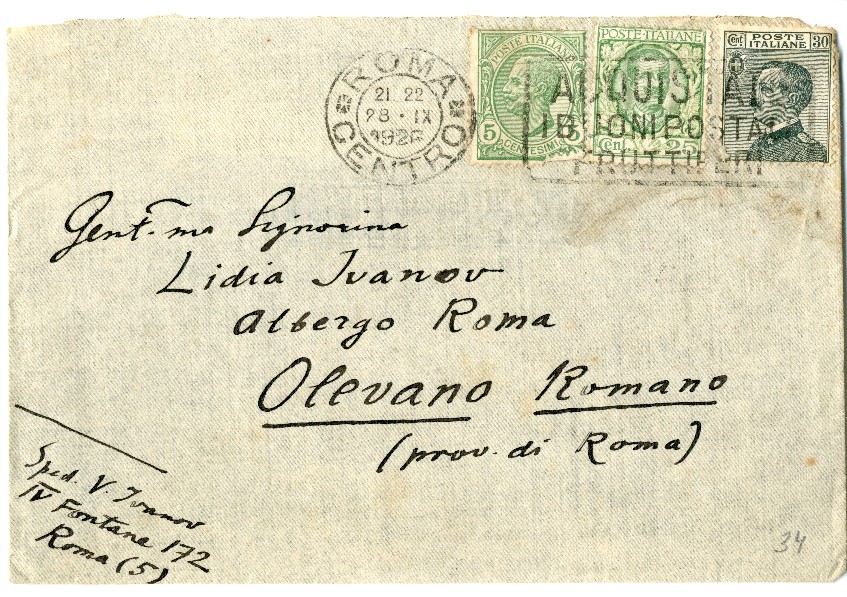 ROMA
CENTRO
21 22
28 · IX
1926
POSTE ITALIANE
5
CENTESIMI
POSTE ITALIANE
Cent
25
Cent
POSTE
ITALIANE
30
ACQUISTATE
I BUONI POSTALI
FRUTTIFERI
Gent.ma Signorina
Lidia Ivanov
Albergo Roma
Olevano Romano
(prov. di Roma)
Sped. V. Ivanov
IV Fontane 172
Roma (5)
34